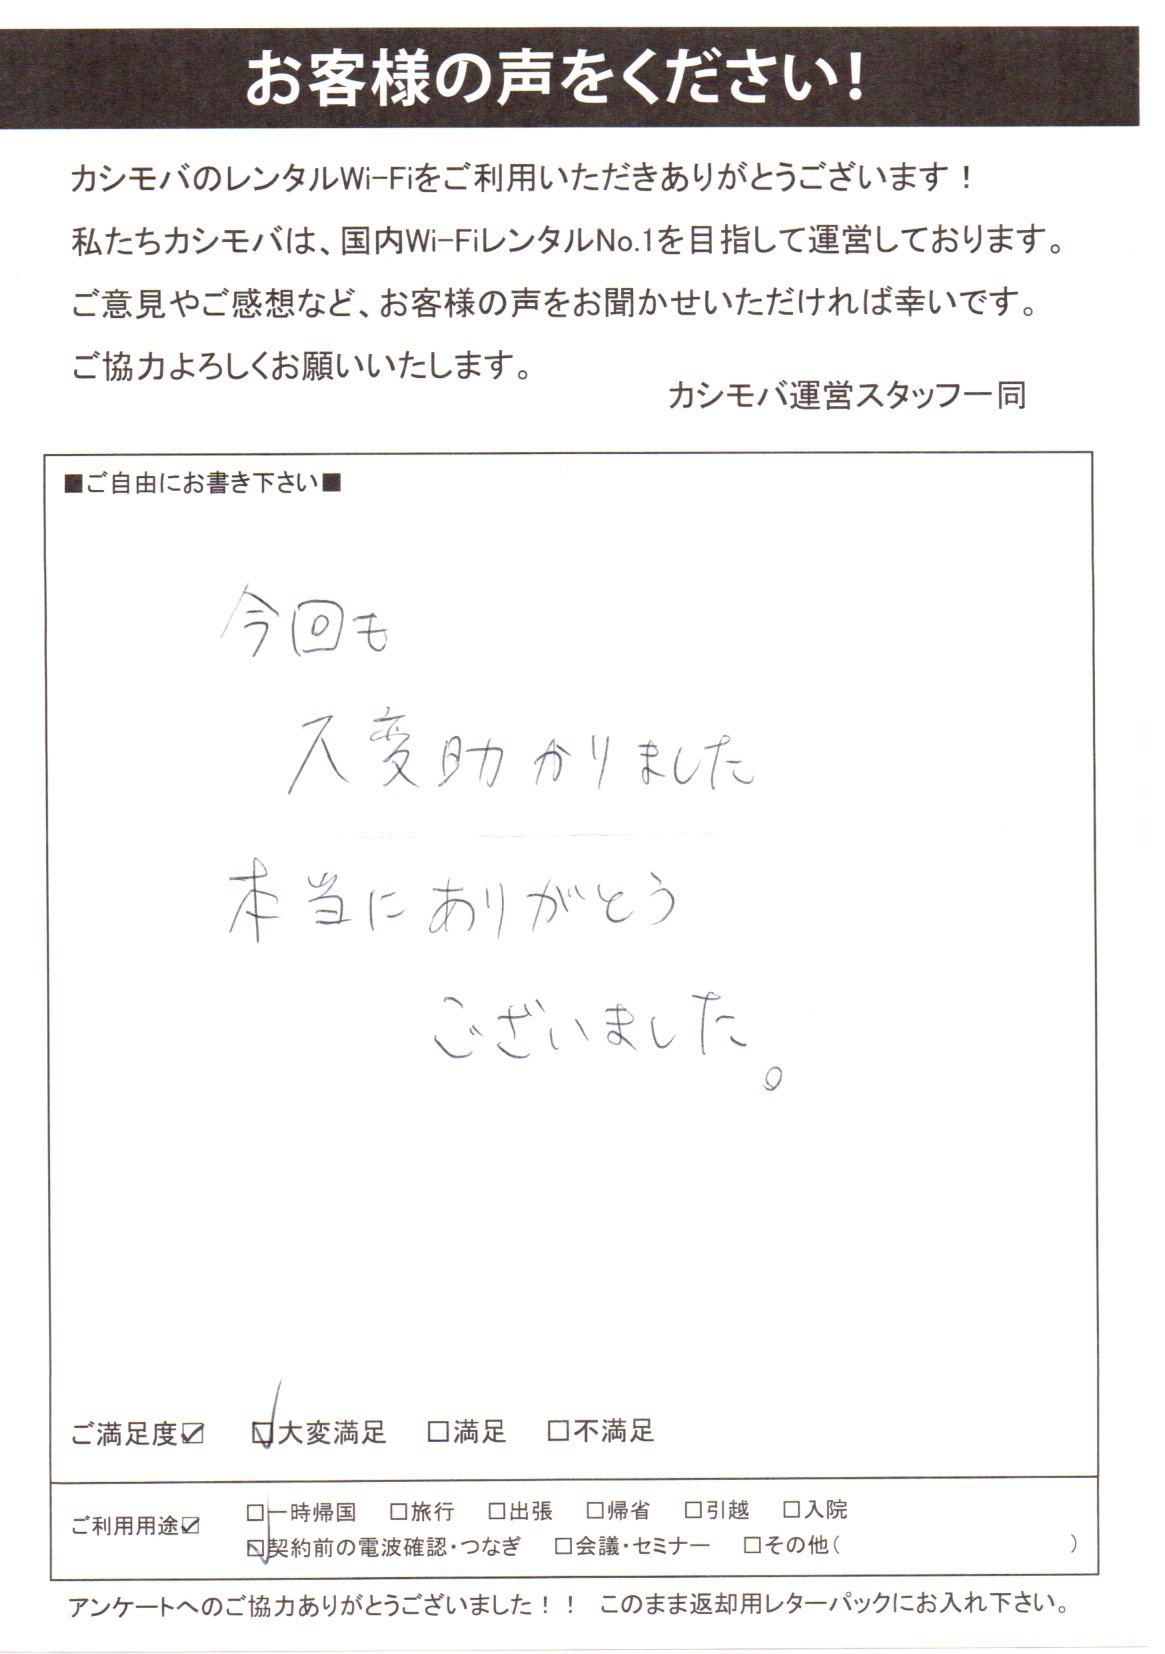 お客様の声をください!
カシモバのレンタルWi-Fiをご利用いただきありがとうございます！
私たちカシモバは、国内Wi-FiレンタルNo.1を目指して運営しております。
ご意見やご感想など、お客様の声をお聞かせいただければ幸いです。
ご協力よろしくお願いいたします。
カシモバ運営スタッフ一同
■ご自由にお書き下さい■
今回も
大変助かりました
本当にありがとう
ございました。
ご満足度☑ ☑大変満足 □満足 □不満足
ご利用用途☑ □一時帰国 □旅行 □出張 □帰省 □引越 □入院
☑契約前の電波確認・つなぎ □会議・セミナー □その他( )
アンケートへのご協力ありがとうございました！！ このまま返却用レターパックにお入れ下さい。